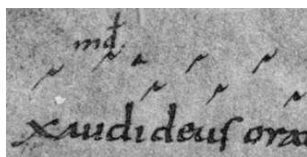 md
xaudi deus ora